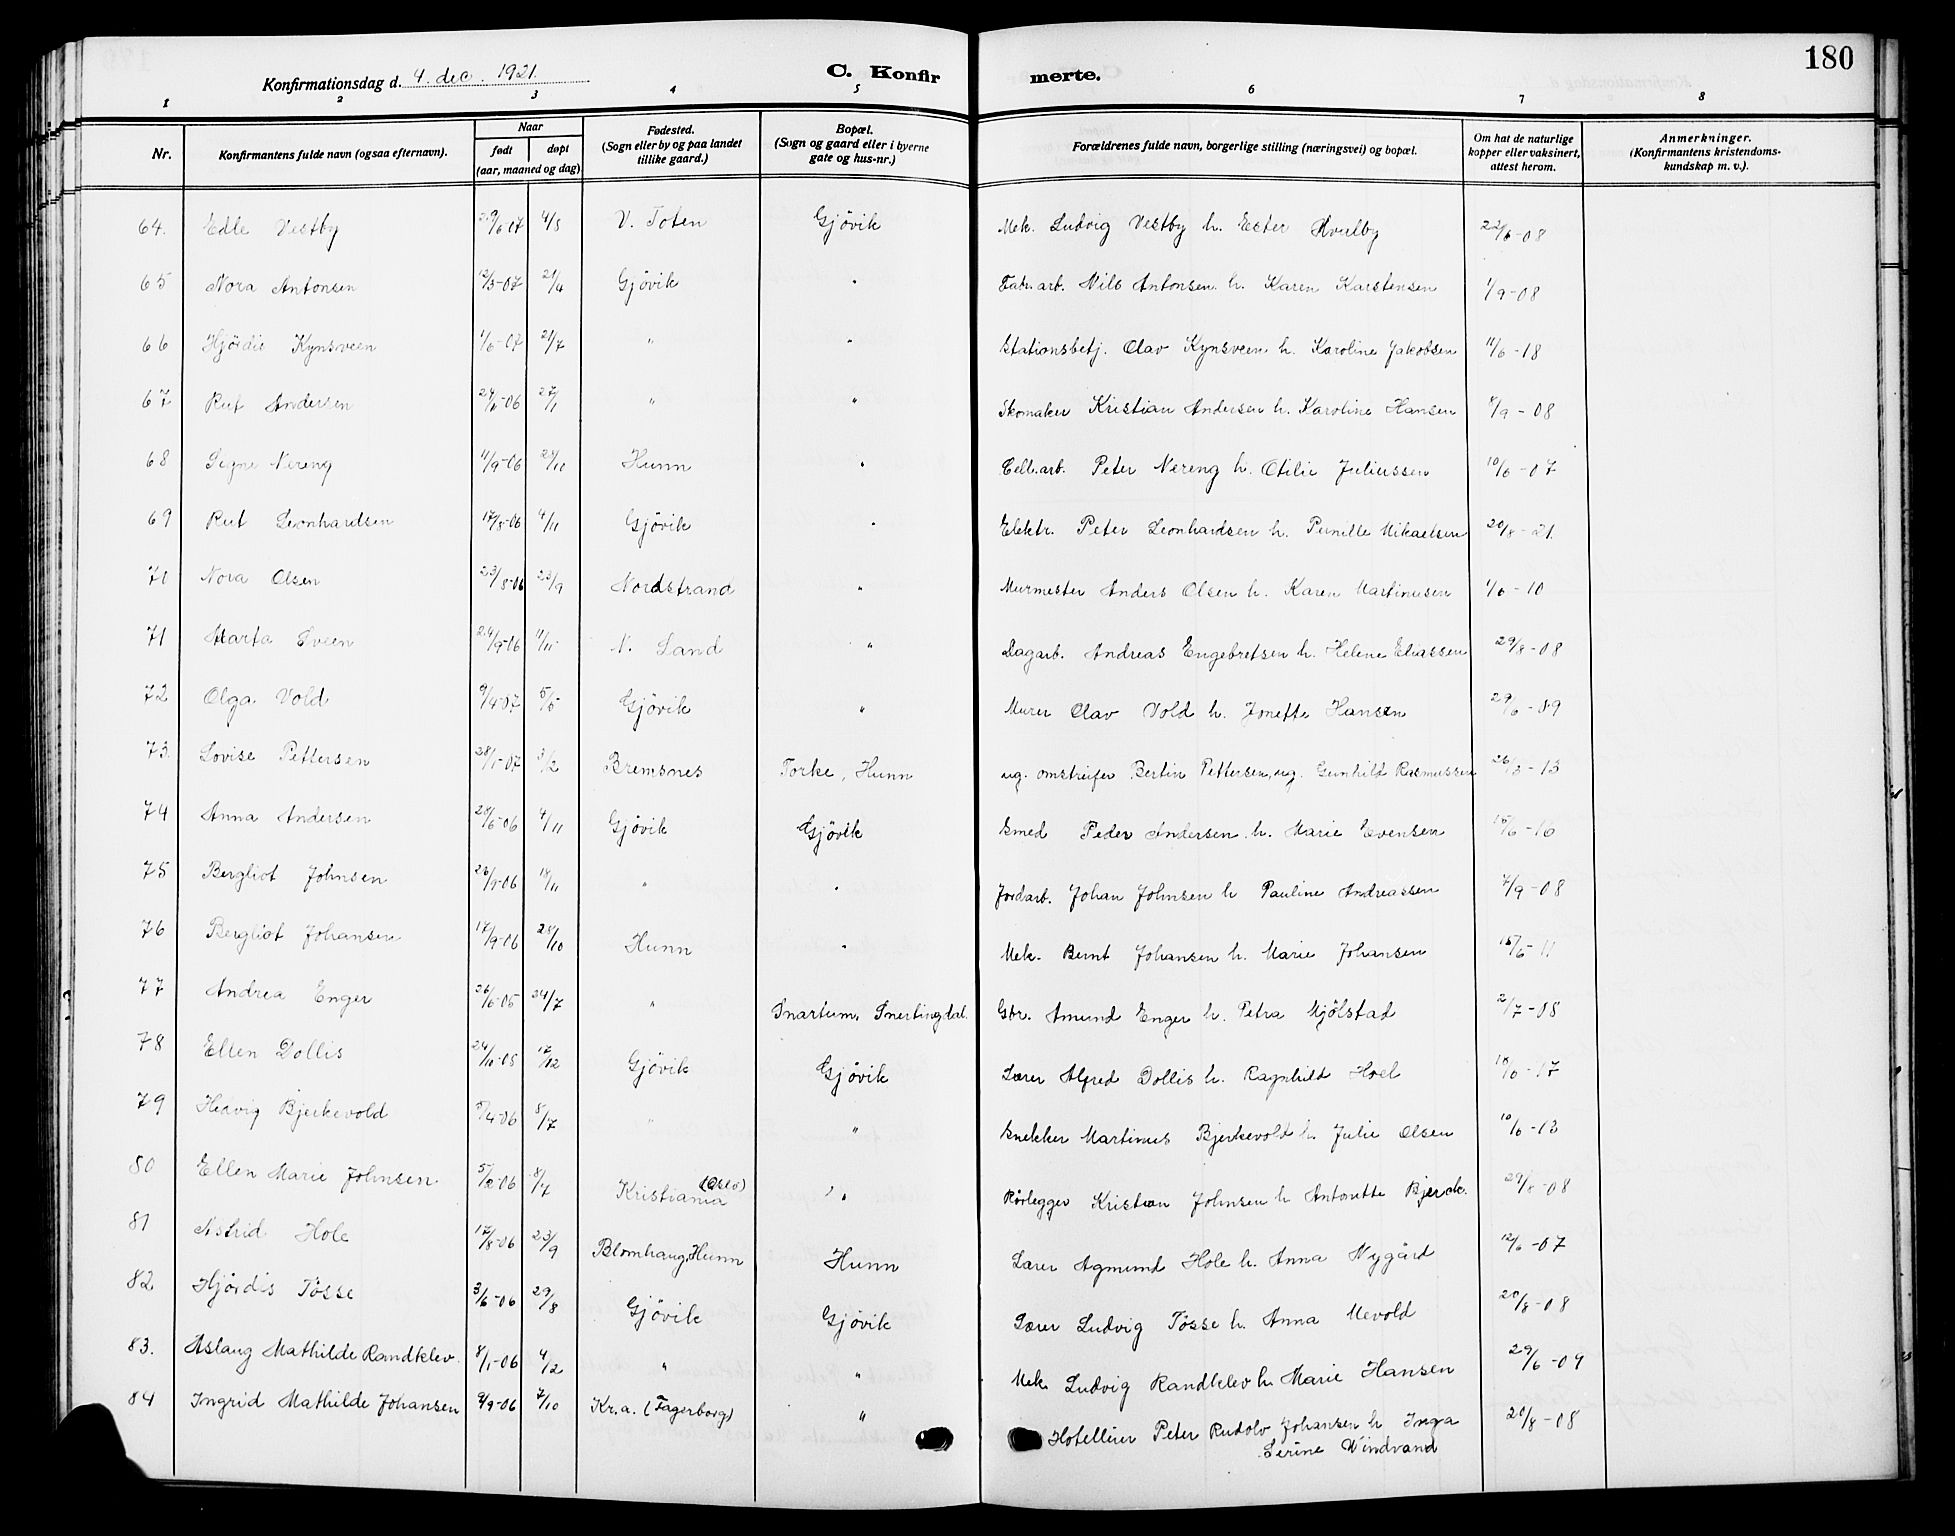 180
Konfirmationsdag d. 4. dec. 1921. C. Konfirmerte.
1 2 3 4 5 6 7 8
Nr. Konfirmantens fulde navn (ogsaa efternavn). Naar født døpt (aar, maaned og dag) Fødested. (Sogn eller by og paa landet tillike gaard.) Bopæl. (Sogn og gaard eller i byerne gate og hus-nr.) Forældrenes fulde navn, borgerlige stilling (næringsvei) og bopæl. Om hat de naturlige kopper eller vaksinert, attest herom. Anmerkninger. (Konfirmantens kristendomskundskap m. v.).
64. Edle Vestby 29/6-07 4/8 V. Toten Gjövik Mek. Ludvig Vestby h. Ester Hvulby 22/6-08
65 Nora Antonsen 12/3-07 21/4 Gjövik " Fabr.arb. Nils Antonsen h. Karen Karstensen 1/9-08
66 Hjördis Kynsveen 1/6-07 21/7 " " Stationsbetj. Olav Kynsveen h. Karoline Jakobsen 11/6-18
67 Rut Andersen 06 27/1 " " Skomaker Kristian Andersen h. Karoline Hansen /9-08
68 Signe Nereng 11/9-06 21/10 Hunn " Cell.arb. Peter Nereng h. Otilie Juliussen 10/6-07
69 Rut Leonhardsen 17/8-06 4/11 Gjövik " Elektr. Peter Leonhardsen h. Pernille Mikaelsen 20/8-21.
71 Nora Olsen 23/8-06 23/9 Nordstrand " Murmester Anders Olsen h. Karen Martinusen 1/6-10
71 Marta Sveen 24/9-06 11/11 N. Land " Dagarb. Andreas Engebretsen h. Helene Eliassen 29/8-08
72 Olga Vold 9/4-07 5/5 Gjövik " Murer Olav Vold h. Jonette Hansen 29/6-09
73. Lovise Pettersen 28/1-07 3/2 Bremsnes Torke, Hunn ug. omstreifer Bertin Pettersen, ug. Gunhild Rasmussen 26/3-13
74 Anna Andersen 28/6-06 4/11 Gjövik Gjövik Smed Peder Andersen h. Marie Evensen 15/6-16
75 Bergliot Johnsen 26/9-06 18/11 " " Jordarb. Johan Johnsen h Pauline Andreassen 7/9-08
76 Bergliot Johansen 17/9-06 28/10 Hunn " Mek. Bernt Johansen h. Marie Johansen 15/6-11
77 Andrea Enger 26/6-05 24/7 " Snartum, Snertingdal. Gbr. Amund Enger h. Petra Mjölstad 2/7-08
78 Ellen Dollis 24/10-05 17/12 Gjövik Gjövik Lærer Alfred Dollis h. Ragnhild Hoel 18/6-17
79 Hedvig Bjerkevold 5/4-06 8/7 " " Snekker Martinus Bjerkevold h. Julie Olsen 10/6-13
80 Ellen Marie Johnsen 5/2-06 8/7 Kristiania (Oslo) " Rörlegger Kristian Johnsen h Antonette Bjerck. 29/8-08
81 Astrid Hole 17/8-06 23/9 Blomhaug, Hunn Hunn Lærer Agmund Hole h. Anna Nygård 12/6-07
82 Hjördis Tösse 3/6-06 29/8 Gjövik Gjövik Lærer Ludvig Tösse h. Anna Mevold 20/8-08
83. Aslaug Mathilde Randklev 8/1-06 4/2 " " Mek. Ludvig Randklev h. Marie Hansen 29/6-09
84 Ingrid Mathilde Johansen 9/9-06 7/10 Kr.a. (Fagerborg) " Hotelleier Peter Rudolv Johansen h Inga
Serine Windvand 20/8-08